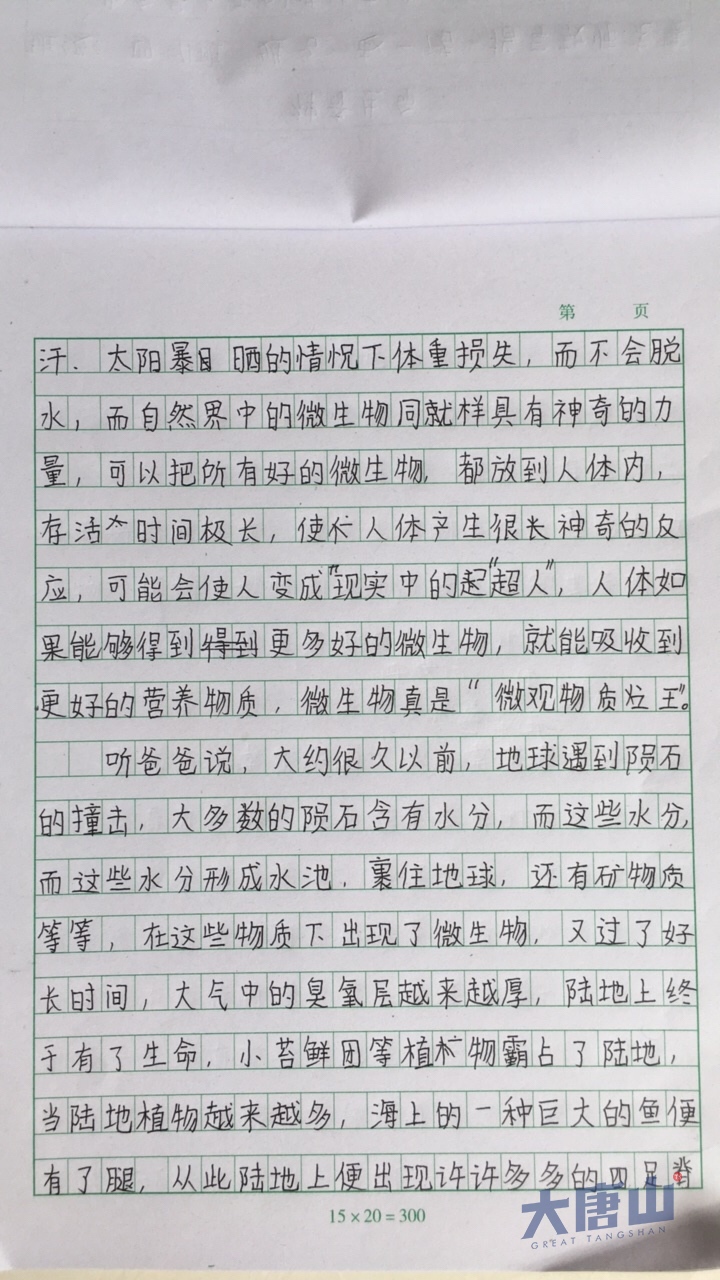 第 页
汗、太阳暴晒的情况下体重损失，而不会脱
水，而自然界中的微生物同就样具有神奇的力
量，可以把所有好的微生物，都放到人体内，
存活时间极长，使人体产生很长神奇的反
应，可能会使人变成"现实中的起"超人"，人体如
果能够得到得到更多好的微生物，就能吸收到
更好的营养物质，微生物真是"微观物质灶王"。
听爸爸说，大约很久以前，地球遇到陨石
的撞击，大多数的陨石含有水分，而这些水分，
而这些水分形成水池，裹住地球，还有矿物质
等等，在这些物质下出现了微生物，又过了好
长时间，大气中的臭氧层越来越厚，陆地上终
于有了生命，小苔鲜团等植物霸占了陆地，
当陆地植物越来越多，海上的一种巨大的鱼便
有了腿，从此陆地上便出现许许多多的四足脊
15×20=300
大唐山
GREAT TANGSHAN